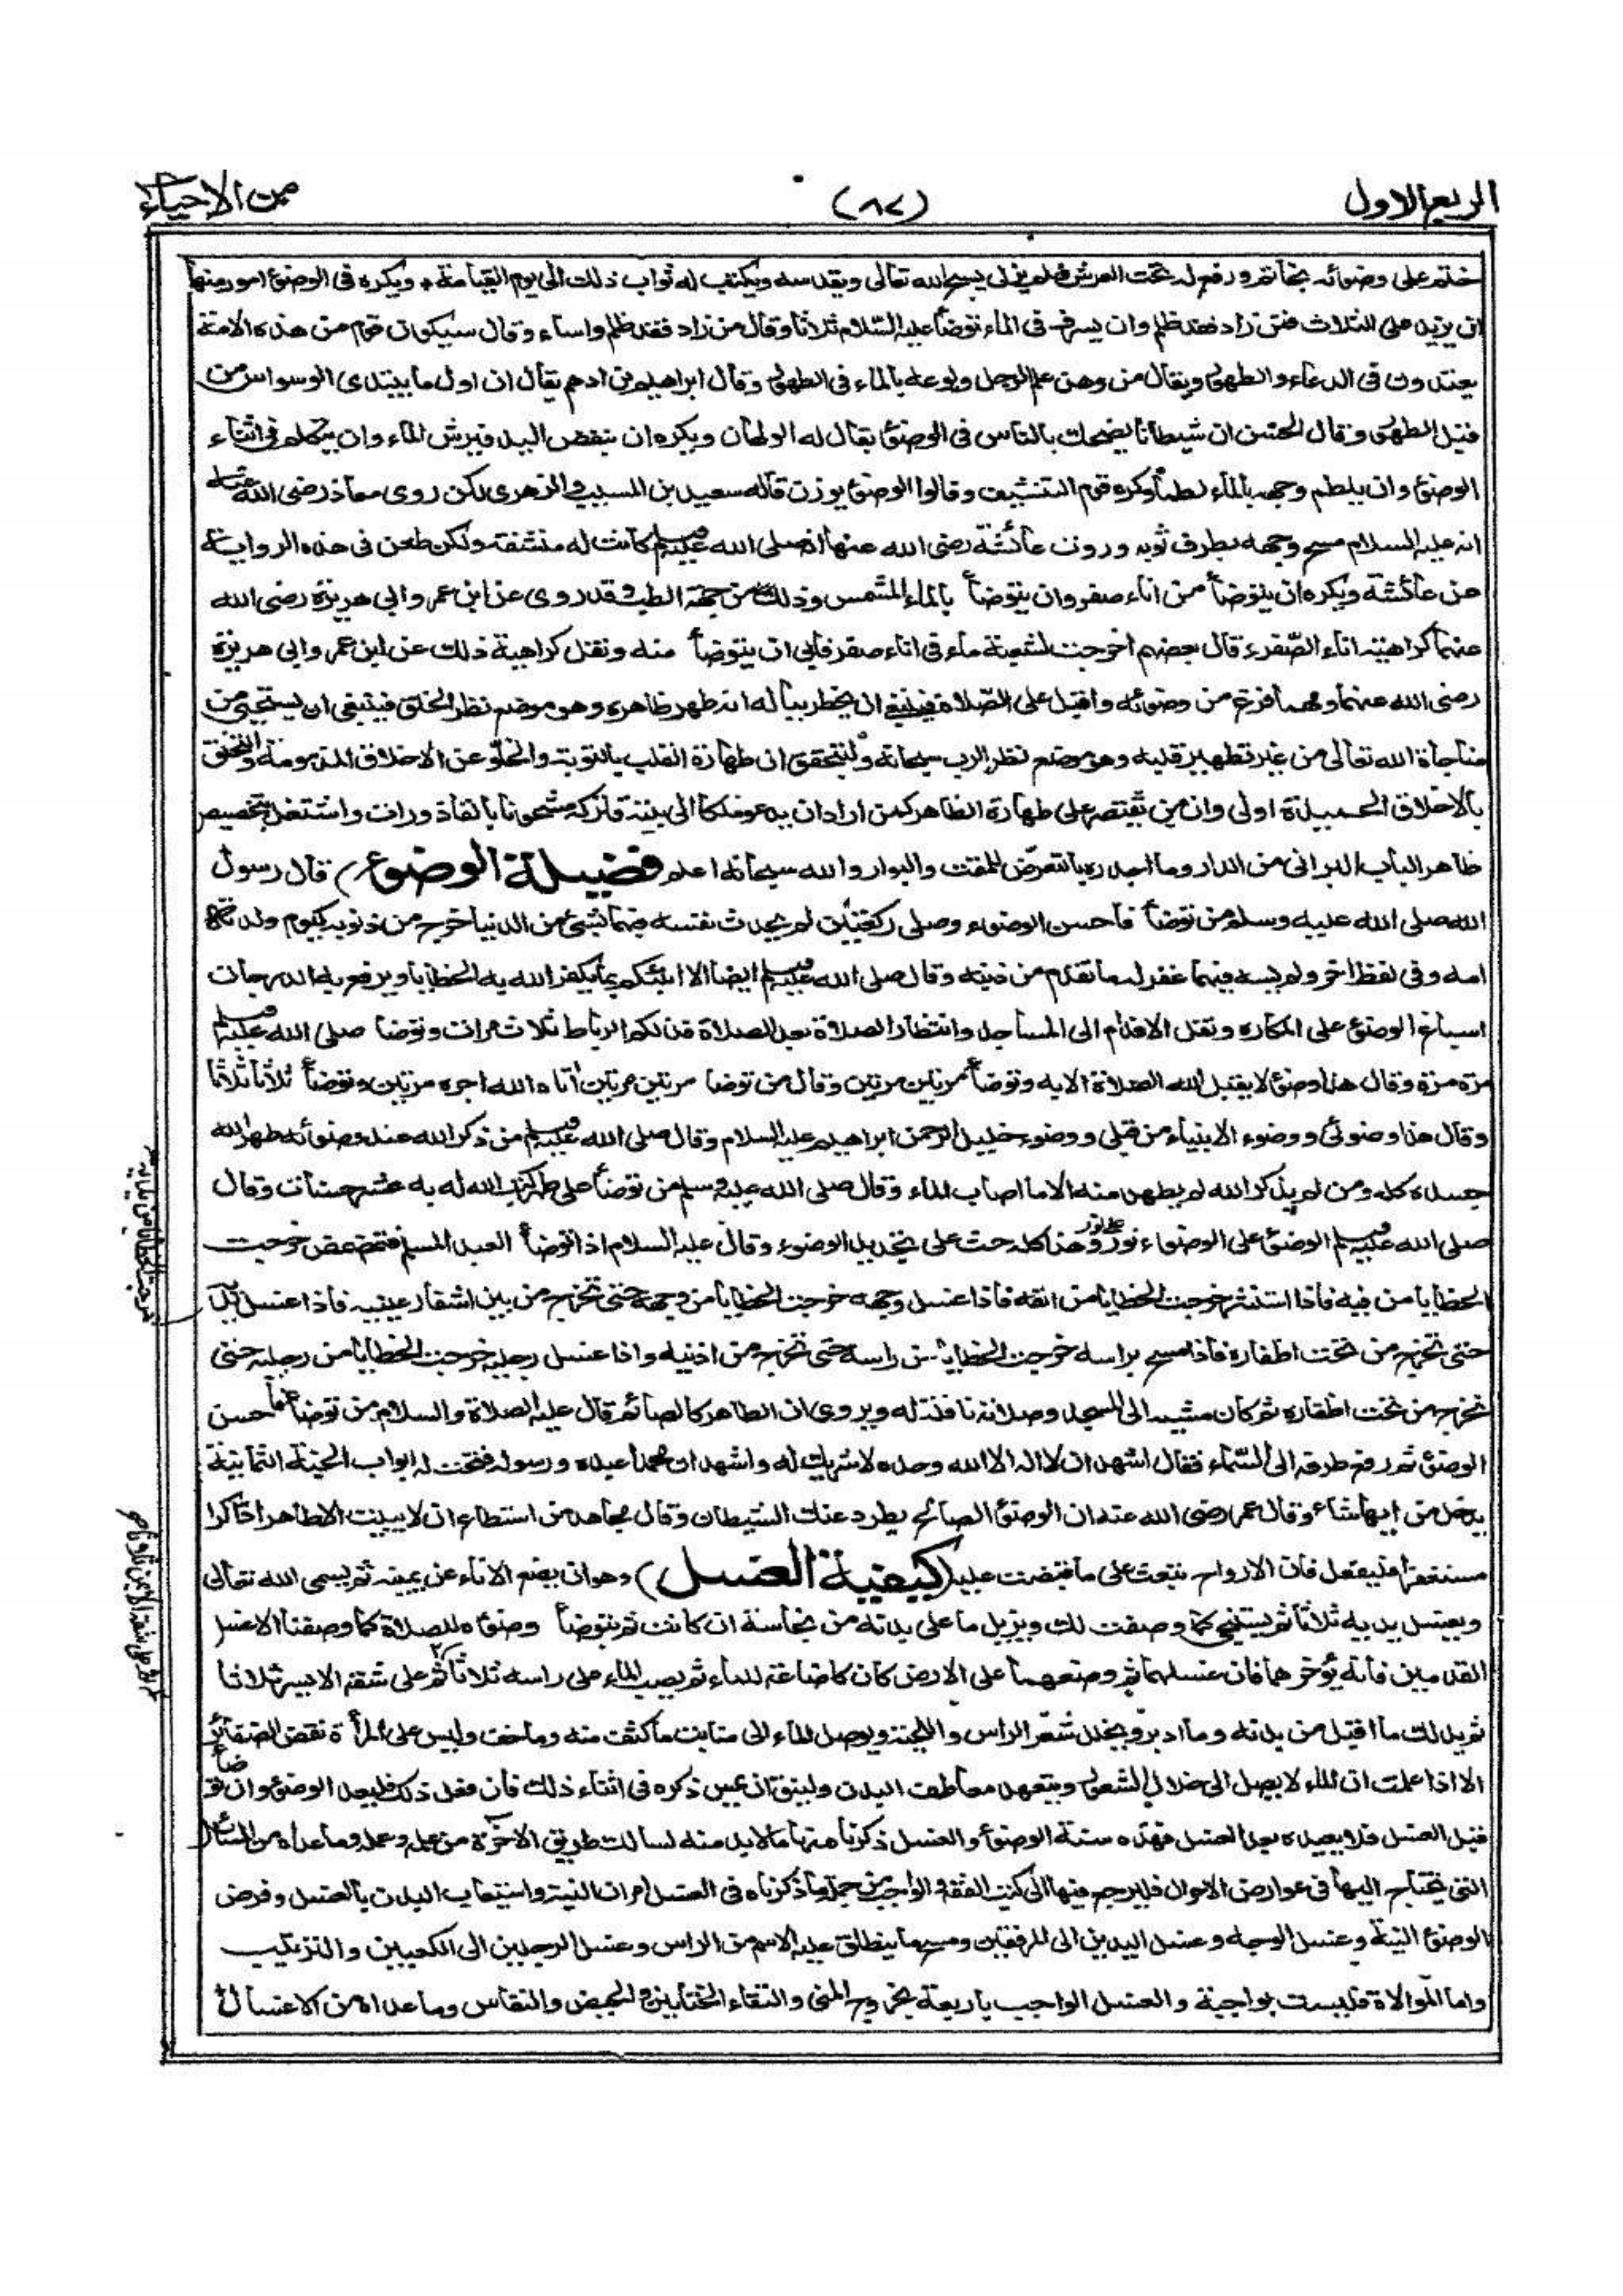 الربع الاول
(٨٧)
من الاحياء
ختم على وضوئه بخاتم ورفع له تحت العرش فلم يزل يسبح الله تعالى ويقدسه ويكتب له ثواب ذلك الى يوم القيامة ويكره فى الوضوء امور منها
ان يزيد على الثلاث فمن زاد فقد ظلم وان يسرف فى الماء توضأ عليه السلام ثلاثا وقال من زاد فقد ظلم واساء وقال سيكون قوم من هذه الامة
يعتدون فى الدعاء والطهور ويقال من وهن علم الرجل ولوعه بالماء فى الطهور وقال ابراهيم بن ادهم يقال ان اول ما يبتدى الوسواس من
قبل الطهور وقال الحسن ان شيطانا يضحك بالناس فى الوضوء يقال له الولهان ويكره ان ينفض اليد فيرش الماء وان يتكلم فى اثناء
الوضوء وان يلطم وجهه بالماء لطما وكره قوم التنشيف وقالوا الوضوء يوزن قاله سعيد بن المسيب والزهرى لكن روى معاذ رضى الله عنه
انه عليه السلام مسح وجهه بطرف ثوبه وروت عائشة رضى الله عنها انه صلى الله عليه وسلم كانت له منشفة ولكن طعن فى هذه الرواية
عن عائشة ويكره ان يتوضأ من اناء صفر وان يتوضأ بالماء المشمس وذلك من جهة الطب وقد روى عن ابن عمر وابى هريرة رضى الله
عنهما كراهية اناء الصفر وقال بعضهم اخرجت لشعبة ماء فى اناء صفر فابى ان يتوضأ منه ونقل كراهية ذلك عن ابن عمر وابى هريرة
رضى الله عنهما ومهما فرغ من وضوئه واقبل على الصلاة فينبغى ان يخطر بباله انه طهر ظاهره وهو موضع نظر الخلق فينبغى ان يستحيى من
مناجاة الله تعالى من غير تطهير قلبه وهو موضع نظر الرب سبحانه وليتحقق ان طهارة القلب بالتوبة والخلو عن الاخلاق المذمومة والتخلق
بالاخلاق الحميدة اولى وان من يقتصر على طهارة الظاهر كمن اراد ان يدعو ملكا الى بيته فتركه مشحونا بالقاذورات واشتغل بتجصيص
ظاهر الباب البرانى من الدار وما اجدره بالتعرض للمقت والبوار والله سبحانه اعلم فضيلة الوضوء) قال رسول
الله صلى الله عليه وسلم من توضأ فاحسن الوضوء وصلى ركعتين لم يحدث نفسه فيهما بشئ من الدنيا خرج من ذنوبه كيوم ولدته
امه وفى لفظ اخر ولم يسه فيهما غفر له ما تقدم من ذنبه وقال صلى الله عليه وسلم ايضا الا انبئكم بما يكفر الله به الخطايا ويرفع به الدرجات
اسباغ الوضوء على المكاره ونقل الاقدام الى المساجد وانتظار الصلاة بعد الصلاة فذلكم الرباط ثلاث مرات وتوضأ صلى الله عليه وسلم
مرة مرة وقال هذا وضوء لا يقبل الله الصلاة الا به وتوضأ مرتين مرتين وقال من توضا مرتين مرتين اتاه الله اجره مرتين وتوضأ ثلاثا ثلاثا
وقال هذا وضوئى ووضوء الانبياء من قبلى ووضوء خليل الرحمن ابراهيم عليه السلام وقال صلى الله عليه وسلم من ذكر الله عند وضوئه طهر الله
جسده كله ومن لم يذكر الله لم يطهر منه الا ما اصاب الماء وقال صلى الله عليه وسلم من توضأ على طهر كتب الله له به عشر حسنات وقال
صلى الله عليه وسلم الوضوء على الوضوء نور على نور وهذا كله حث على تجديد الوضوء وقال عليه السلام اذا توضأ العبد المسلم فتمضمض خرجت
الخطايا من فيه فاذا استنثر خرجت الخطايا من انفه فاذا غسل وجهه خرجت الخطايا من وجهه حتى تخرج من بين اشفار عينيه فاذا غسل يديه
خرجت الخطايا من يديه
حتى تخرج من تحت اظفاره فاذا مسح براسه خرجت الخطايا من راسه حتى تخرج من اذنيه واذا غسل رجليه خرجت الخطايا من رجليه حتى
تخرج من تحت اظفاره ثم كان مشيه الى المسجد وصلاته نافلة له ويروى ان الطاهر كالصائم قال عليه الصلاة والسلام من توضأ فاحسن
الوضوء ثم رفع طرفه الى السماء فقال اشهد ان لا اله الا الله وحده لا شريك له واشهد ان محمدا عبده ورسوله فتحت له ابواب الجنة الثمانية
يدخل من ايها شاء وقال عمر رضى الله عنه ان الوضوء الصالح يطرد عنك الشيطان وقال مجاهد من استطاع ان لا يبيت الا طاهرا ذاكرا
مستغفرا فليفعل فان الارواح تبعث على ما قبضت عليه (كيفية الغسل) وهو ان يضع الاناء عن يمينه ثم يسمى الله تعالى
ويغسل يديه ثلاثا ثم يستنجى كما وصفت لك ويزيل ما على بدنه من نجاسة ان كانت ثم يتوضأ وضوءه للصلاة كما وصفنا الا غسل
القدمين فانه يؤخرهما فان غسلهما ثم وضعهما على الارض كان كاضاعة للماء ثم يصب الماء على راسه ثلاثا ثم على شقه الايسر ثلاثا
ثم على شقه الايمن ثلاثا
ثم يدلك ما اقبل من بدنه وما ادبر ويخلل شعر الراس واللحية ويوصل الماء الى منابت ما كثف منه وما خف وليس على المرأة نقض الضفائر
الا اذا علمت ان الماء لا يصل الى خلال الشعور ويتعهد معاطف البدن وليتق ان يمس ذكره فى اثناء ذلك فان فعل ذلك فليعد الوضوء وان توضأ
قبل الغسل فلا يعيده بعد الغسل فهذه سنة الوضوء والغسل ذكرنا منها ما لا بد منه لسالك طريق الاخرة من علمه وعمله وما عداه من المسائل
التى يحتاج اليها فى عوارض الاحوال فليرجع فيها الى كتب الفقه والواجب من جملة ما ذكرناه فى الغسل امران النية واستيعاب البدن بالغسل وفرض
الوضوء النية وغسل الوجه وغسل اليدين الى المرفقين ومسح ما ينطلق عليه الاسم من الراس وغسل الرجلين الى الكعبين والترتيب
واما الموالاة فليست بواجبة والغسل الواجب باربعة بخروج المنى والتقاء الختانين والحيض والنفاس وما عداه من الاغسال